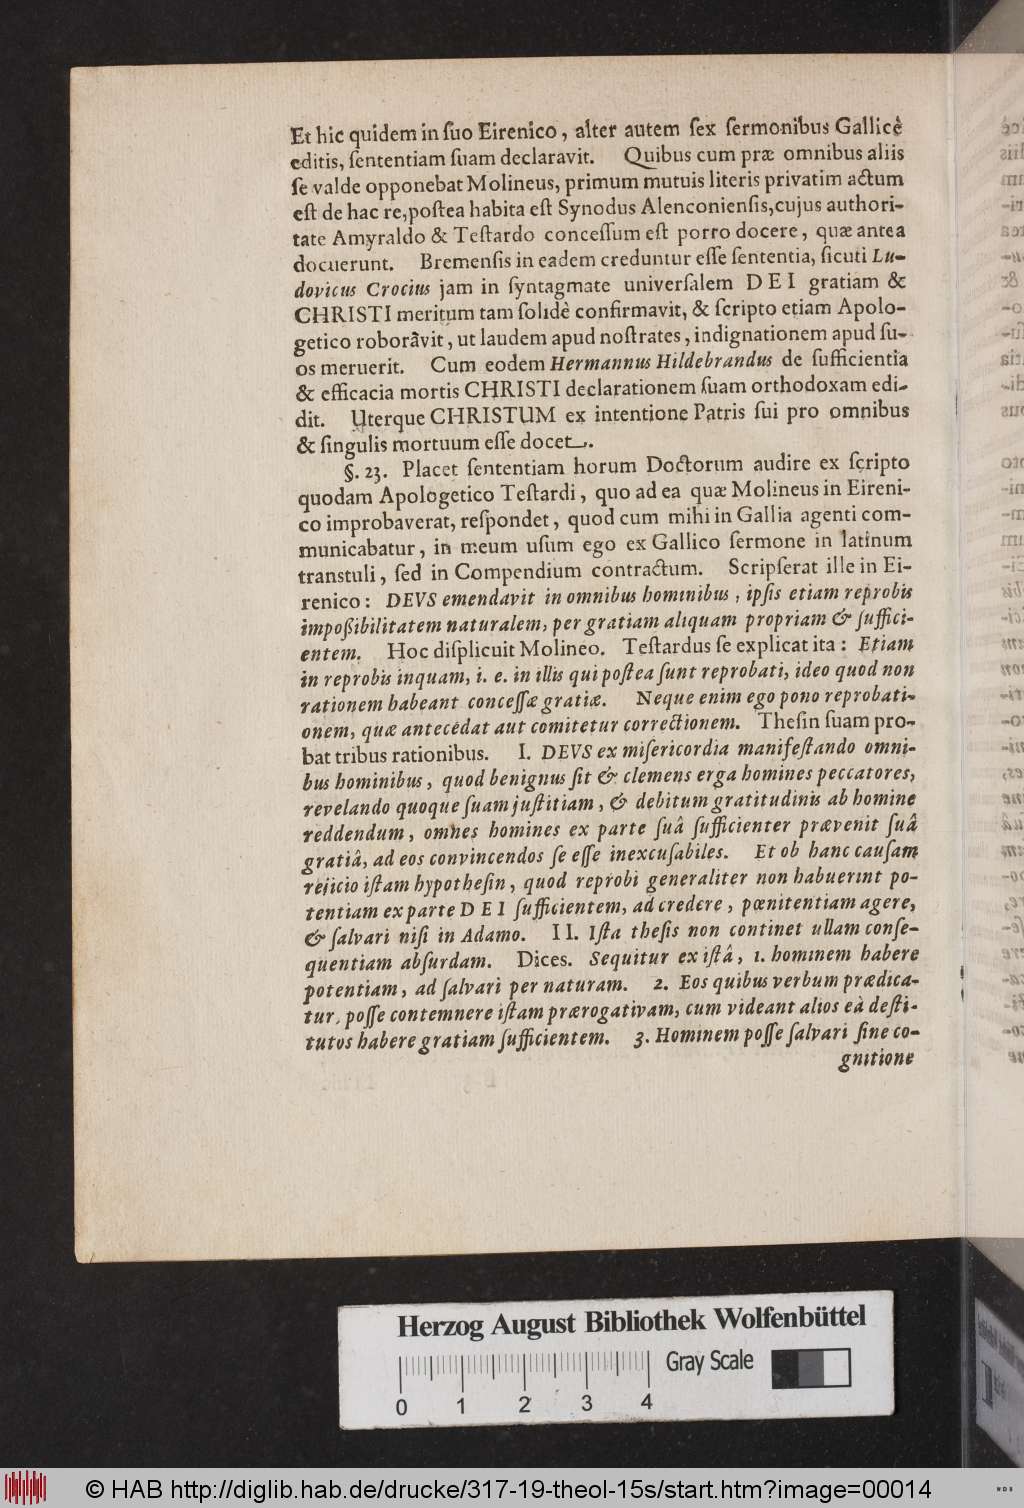 Et hic quidem in ſuo Eirenico, alter autem ſex ſermonibus Gallicè
editis, ſententiam ſuam declaravit. Quibus cum præ omnibus aliis
ſe valde opponebat Molineus, primum mutuis literis privatim actum
eſt de hac re, poſtea habita eſt Synodus Alenconienſis, cujus authori-
tate Amyraldo & Teſtardo conceſſum eſt porro docere, quæ antea
docuerunt. Bremenſis in eadem creduntur eſſe ſententia, ſicuti Lu-
dovicus Crocius jam in ſyntagmate univerſalem DEI gratiam &
CHRISTI meritum tam ſolidè confirmavit, & ſcripto etiam Apolo-
getico roborâvit, ut laudem apud noſtrates, indignationem apud ſu-
os meruerit. Cum eodem Hermannus Hildebrandus de ſufficientia
& efficacia mortis CHRISTI declarationem ſuam orthodoxam edi-
dit. Uterque CHRISTUM ex intentione Patris ſui pro omnibus
& ſingulis mortuum eſſe docet.
§. 23. Placet ſententiam horum Doctorum audire ex ſcripto
quodam Apologetico Teſtardi, quo ad ea quæ Molineus in Eireni-
co improbaverat, reſpondet, quod cum mihi in Gallia agenti com-
municabatur, in meum uſum ego ex Gallico ſermone in latinum
transtuli, ſed in Compendium contractum. Scripſerat ille in Ei-
renico: DEVS emendavit in omnibus hominibus, ipſis etiam reprobis
impoßibilitatem naturalem, per gratiam aliquam propriam & ſuffici-
entem. Hoc diſplicuit Molineo. Teſtardus ſe explicat ita: Etiam
in reprobis inquam, i. e. in illis qui poſtea ſunt reprobati, ideo quod non
rationem habeant conceſſæ gratiæ. Neque enim ego pono reprobati-
onem, quæ antecedat aut comitetur correctionem. Theſin ſuam pro-
bat tribus rationibus. I. DEVS ex miſericordia manifeſtando omni-
bus hominibus, quod benignus ſit & clemens erga homines peccatores,
revelando quoque ſuam juſtitiam, & debitum gratitudinis ab homine
reddendum, omnes homines ex parte ſuâ ſufficienter prævenit ſuâ
gratiâ, ad eos convincendos ſe eſſe inexcuſabiles. Et ob hanc cauſam
rejicio iſtam hypotheſin, quod reprobi generaliter non habuerint po-
tentiam ex parte DEI ſufficientem, ad credere, pœnitentiam agere,
& ſalvari niſi in Adamo. II. Iſta theſis non continet ullam conſe-
quentiam abſurdam. Dices. Sequitur ex iſtâ, 1. hominem habere
potentiam, ad ſalvari per naturam. 2. Eos quibus verbum prædica-
tur, poſſe contemnere iſtam prærogativam, cum videant alios eà deſti-
tutos habere gratiam ſufficientem. 3. Hominem poſſe ſalvari ſine co-
gnitione
Herzog August Bibliothek Wolfenbüttel
Gray Scale
0 1 2 3 4
© HAB http://diglib.hab.de/drucke/317-19-theol-15s/start.htm?image=00014